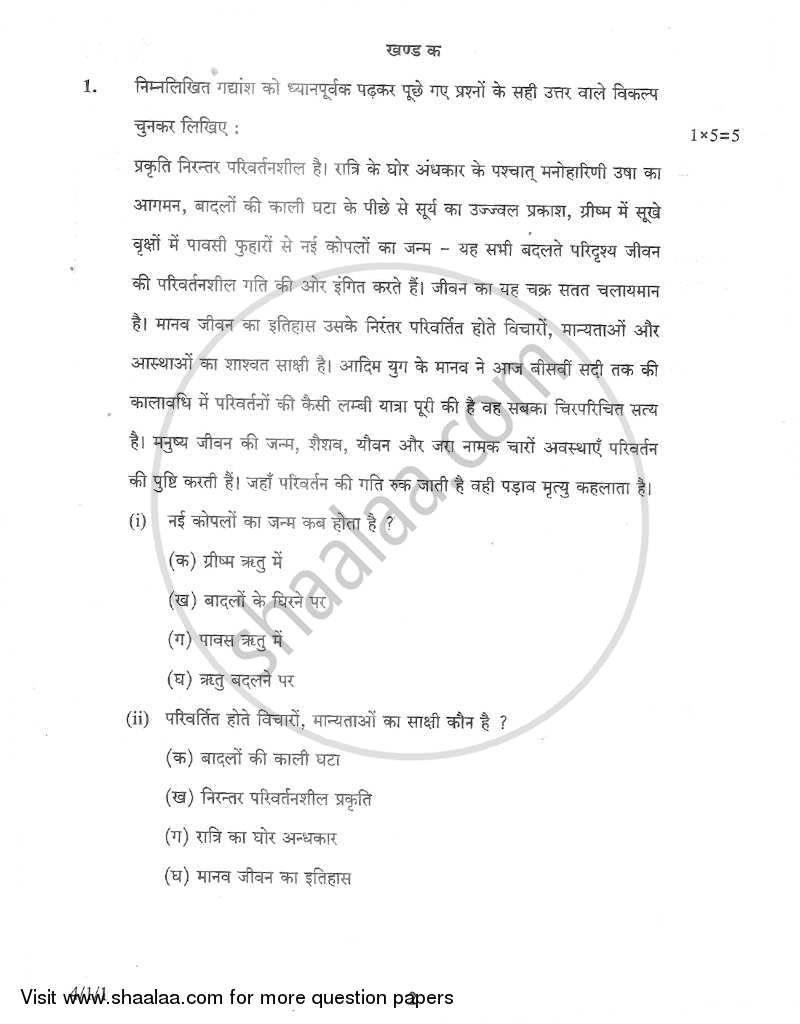 खण्ड क
1. निम्नलिखित गद्यांश को ध्यानपूर्वक पढ़कर पूछे गए प्रश्नों के सही उत्तर वाले विकल्प
चुनकर लिखिए :
1×5=5
प्रकृति निरन्तर परिवर्तनशील है। रात्रि के घोर अंधकार के पश्चात् मनोहारिणी उषा का
आगमन, बादलों की काली घटा के पीछे से सूर्य का उज्ज्वल प्रकाश, ग्रीष्म में सूखे
वृक्षों में पावसी फुहारों से नई कोपलों का जन्म – यह सभी बदलते परिदृश्य जीवन
की परिवर्तनशील गति की ओर इंगित करते हैं। जीवन का यह चक्र सतत चलायमान
है। मानव जीवन का इतिहास उसके निरंतर परिवर्तित होते विचारों, मान्यताओं और
आस्थाओं का शाश्वत साक्षी है। आदिम युग के मानव ने आज बीसवीं सदी तक की
कालावधि में परिवर्तनों की कैसी लम्बी यात्रा पूरी की है वह सबका चिरपरिचित सत्य
है। मनुष्य जीवन की जन्म, शैशव, यौवन और जरा नामक चारों अवस्थाएँ परिवर्तन
की पुष्टि करती हैं। जहाँ परिवर्तन की गति रुक जाती है वही पड़ाव मृत्यु कहलाता है।
(i) नई कोपलों का जन्म कब होता है ?
(क) ग्रीष्म ऋतु में
(ख) बादलों के घिरने पर
(ग) पावस ऋतु में
(घ) ऋतु बदलने पर
(ii) परिवर्तित होते विचारों, मान्यताओं का साक्षी कौन है ?
(क) बादलों की काली घटा
(ख) निरन्तर परिवर्तनशील प्रकृति
(ग) रात्रि का घोर अन्धकार
(घ) मानव जीवन का इतिहास
shaalaa.com
4/1/1
2
Visit www.shaalaa.com for more question papers